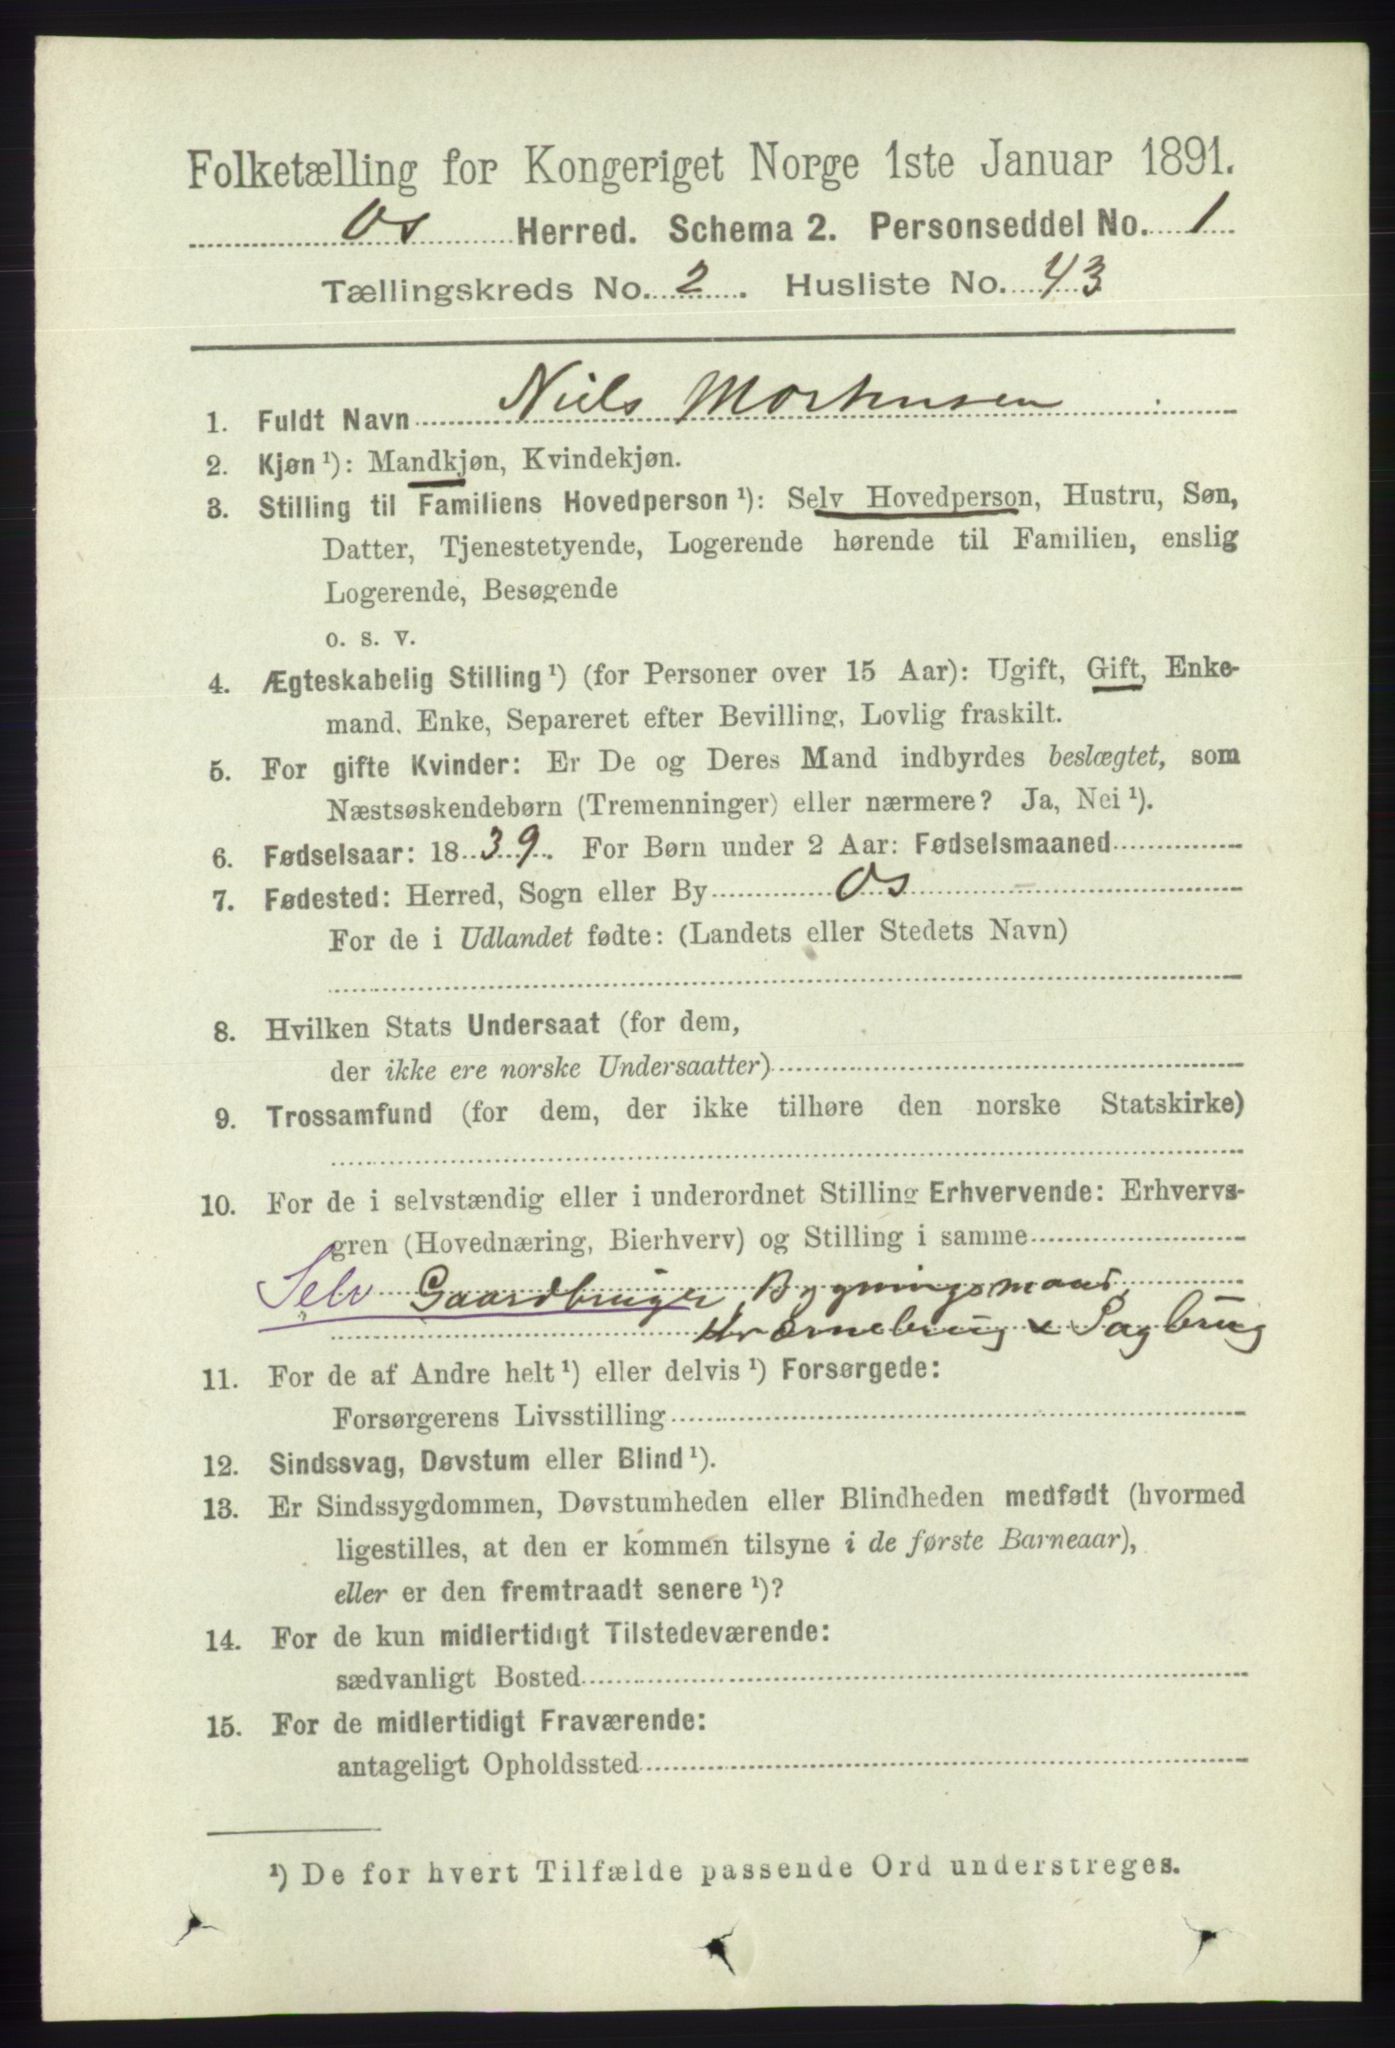 Folketælling for Kongeriget Norge 1ste Januar 1891.
Os Herred. Schema 2. Personseddel No. 1
Tællingskreds No. 2. Husliste No. 43
1. Fuldt Navn Niels Mortensen
2. Kjøn ¹): Mandkjøn, Kvindekjøn.
3. Stilling til Familiens Hovedperson ¹): Selv Hovedperson, Hustru, Søn,
Datter, Tjenestetyende, Logerende hørende til Familien, enslig
Logerende, Besøgende
o. s. v.
4. Ægteskabelig Stilling ¹) (for Personer over 15 Aar): Ugift, Gift, Enke-
mand, Enke, Separeret efter Bevilling, Lovlig fraskilt.
5. For gifte Kvinder: Er De og Deres Mand indbyrdes beslægtet, som
Næstsøskendebørn (Tremenninger) eller nærmere? Ja, Nei ¹).
6. Fødselsaar: 1839. For Børn under 2 Aar: Fødselsmaaned
7. Fødested: Herred, Sogn eller By Os
For de i Udlandet fødte: (Landets eller Stedets Navn)
8. Hvilken Stats Undersaat (for dem,
der ikke ere norske Undersaatter)
9. Trossamfund (for dem, der ikke tilhøre den norske Statskirke)
10. For de i selvstændig eller i underordnet Stilling Erhvervende: Erhvervs-
gren (Hovednæring, Bierhverv) og Stilling i samme
Selv Gaardbruger, Bygningsmand,
Kværnebrug & Sagbrug
11. For de af Andre helt ¹) eller delvis ¹) Forsørgede:
Forsørgerens Livsstilling
12. Sindssvag, Døvstum eller Blind ¹).
13. Er Sindssygdommen, Døvstumheden eller Blindheden medfødt (hvormed
ligestilles, at den er kommen tilsyne i de første Barneaar),
eller er den fremtraadt senere ¹)?
14. For de kun midlertidigt Tilstedeværende:
sædvanligt Bosted
15. For de midlertidigt Fraværende:
antageligt Opholdssted
¹) De for hvert Tilfælde passende Ord understreges.